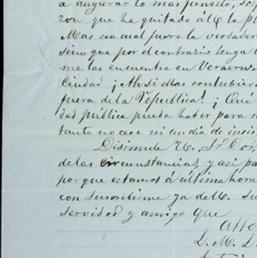 a augurar lo mas funesto, so
zon que ha quitado á la p
Mas sea cual fuere la verdader
sino que por el contrario tenga
me las encuentre en Veracruz
Ciudad! ¡Ah si Mas
fuera de la República! ¡Qué
dad pública pueda haber para
tanto no cese ni un dia de insis
Disimule U. Sr. Dor.
de las circunstancias, y asi pa
porque estamos á última hora
con suscribirme ya de U. Su
servidor y amigo que
atto
L. M. B.